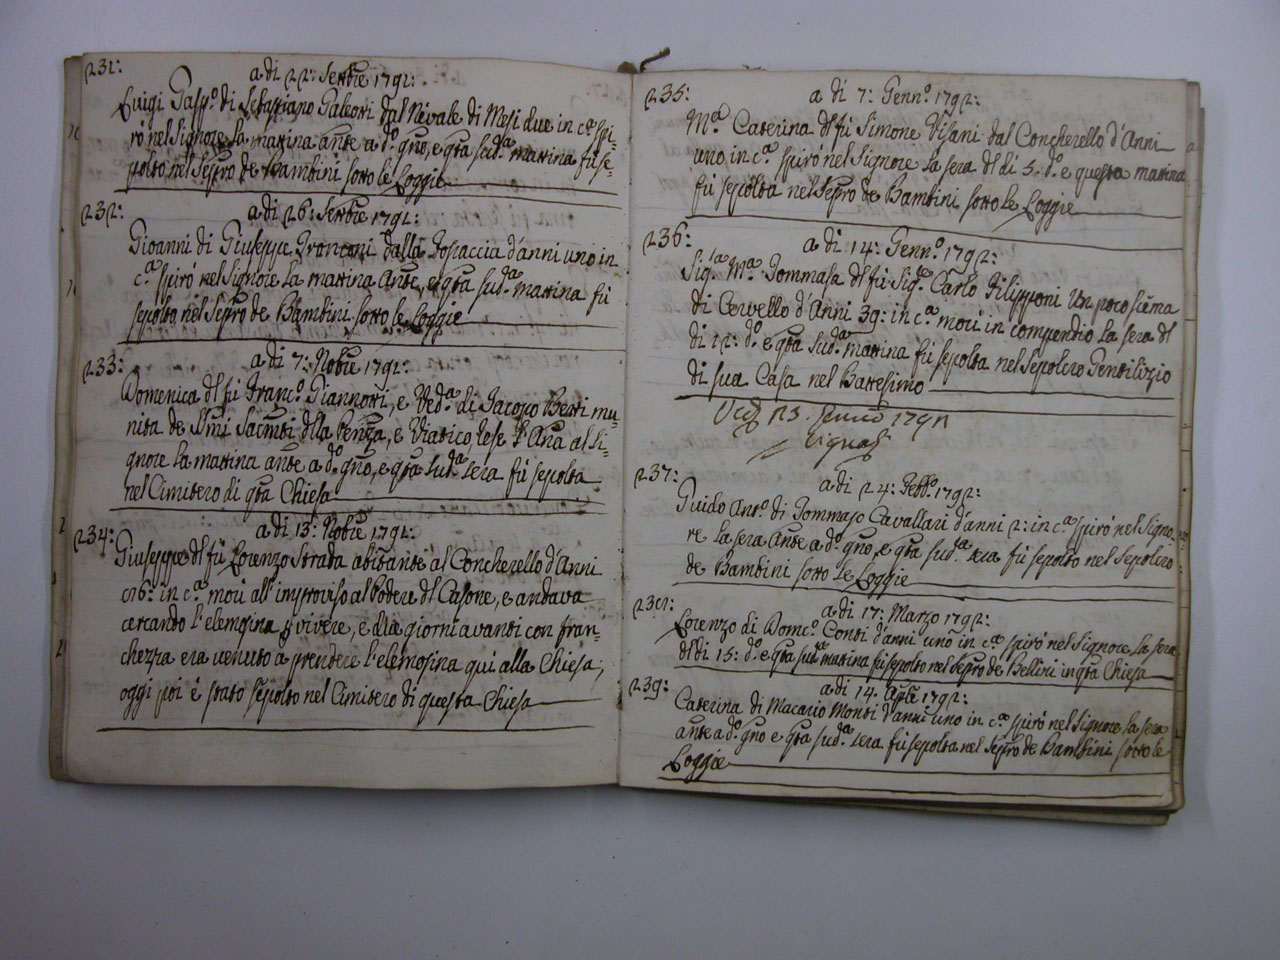 231:
a di 22: Settbre 1791:
Luigi Gasp.º di Sebastiano Galeotti dal Nevale di Mesi due in c.ª spi-
rò nel Signore la mattina ante a d.º gño, e qta sud.ª mattina fù se-
polto nel Sepro de Bambini sotto le Loggie
232:
a di 26: Settbre 1791:
Gioanni di Giuseppe Fronconi dalla d'anni uno in
c.ª spirò nel Signore la mattina Ante, e qta sud.ª mattina fù
sepolto nel Sepro de Bambini sotto le Loggie
233:
a di 7: Nobre 1791:
Domenica dl fù Franc.º Giannotti, e Ved.ª di Jacopo Berti mu-
nita de SSmi Sacmti dlla Penza, e Viatico rese l'Aña al Si-
gnore la mattina ante a d.º gño, e qta sud.ª sera fù sepolta
nel Cimitero di qta Chiesa
234:
a di 13: Nobre 1791:
Giuseppe dl fù Lorenzo Strada abitante al Concherello d'Anni
76: in c.ª morì all'improviso al Podere dl Casone, e andava
cercando l'elemosina p vivere, e due giorni avanti con fran-
chezza era venuto à prendere l'elemosina qui alla Chiesa;
oggi poi è stato sepolto nel Cimitero di questa Chiesa
235:
a di 7: Genn.º 1792:
M.ª Caterina dl fù Simone Visani dal Concherello d'Anni
uno in c.ª spirò nel Signore la sera dl di 5. d.º e questa mattina
fù sepolta nel Sepro de Bambini sotto le Loggie
236:
a di 14: Genn.º 1792:
Sig.ra M.ª Tommasa dl fù Sig.re Carlo Filipponi un poco scema
di Cervello d'Anni 39: in c.ª morì in compendio la sera dl
di 12: d.º e qta sud.ª mattina fù sepolta nel Sepolcro Gentilizio
di sua Casa nel Battesimo
237:
a di 24: Febb.º 1792:
Guido Ant.º di Tommaso Cavallari d'anni 2: in c.ª spirò nel Signo-
re la sera Ante a d.º gño, e qta sud.ª sera fù sepolto nel Sepolcro
de Bambini sotto le Loggie
238:
a di 17: Marzo 1792:
Lorenzo di Domc.º Conti d'anni uno in c.ª spirò nel Signore la sera
dl di 15: d.º e qta sud.ª mattina fù sepolto nel Sepro de Bellini in qta Chiesa
239:
a di 14. Aple 1792:
Caterina di Macario Monti d'anni uno in c.ª spirò nel Signore la sera
ante a d.º gño e qta sud.ª sera fù sepolta nel Sepro de Bambini sotto le
Loggie